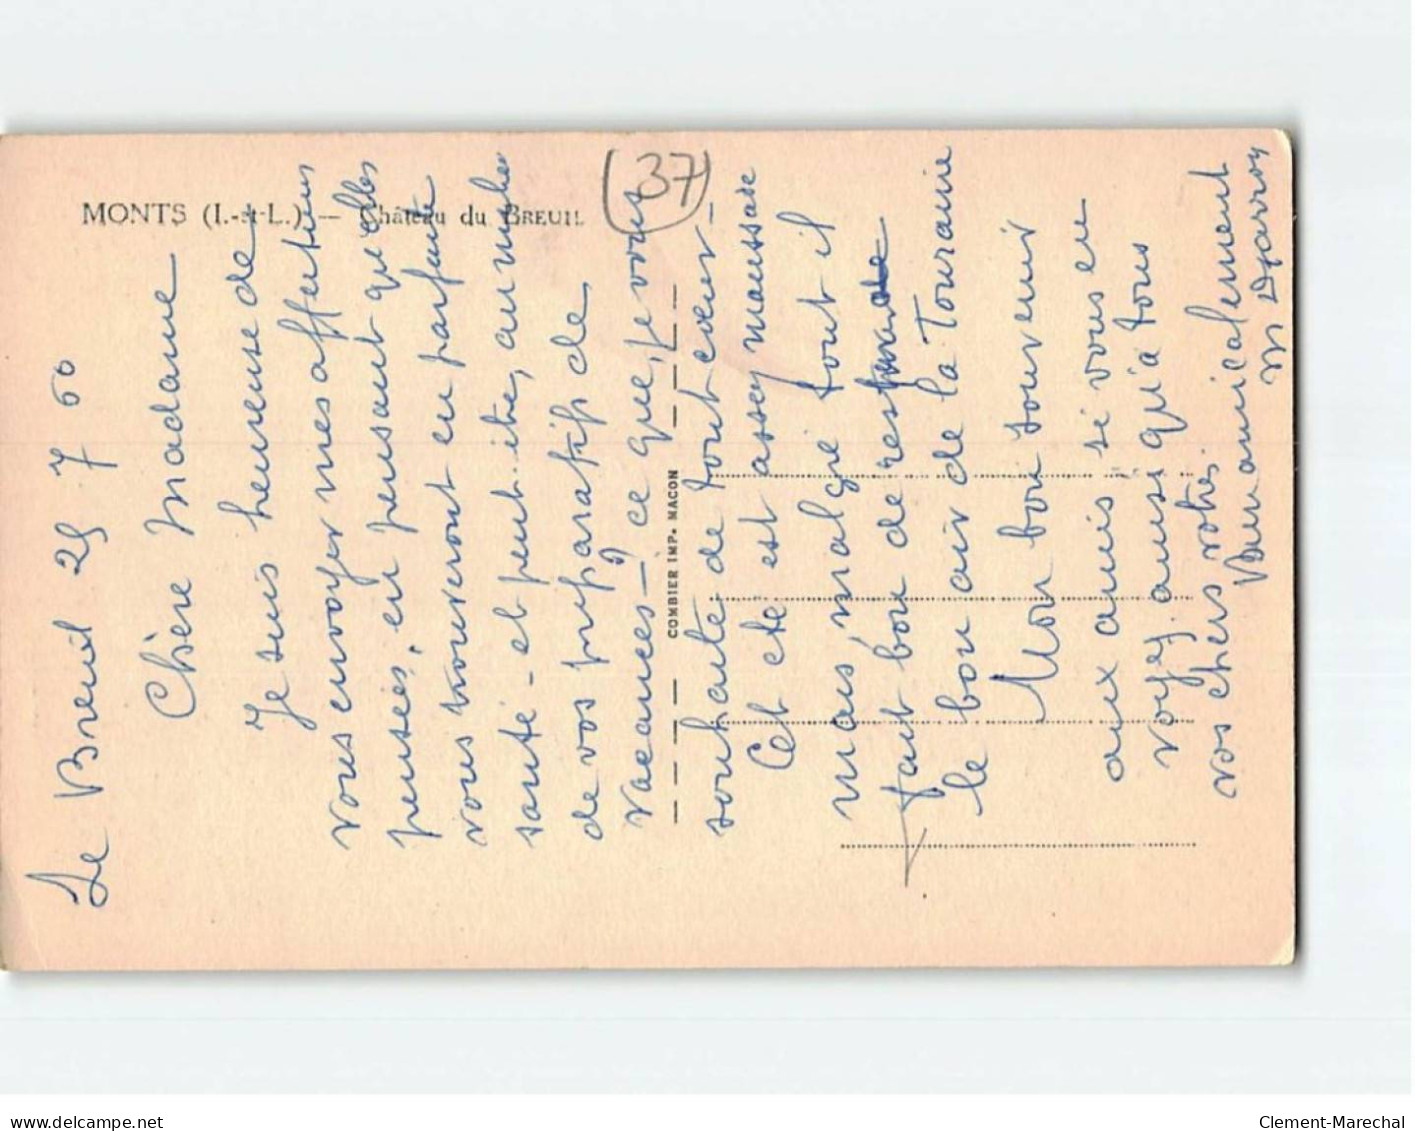 MONTS (I.-et-L.) — Château du BREUIL
(37)
COMBIER IMP. MACON
Le Breuil 25 7 60
Chère Madame
Je suis heureuse de
vous envoyer mes affectueuses
pensées, en pensant qu'elles
vous trouveront en parfaite
santé - et peut-être, au milieu
de vos préparatifs de
vacances - ce que, je vous
souhaite de tout cœur -
Cet été est assez maussade
mais malgré tout il
fait bon de respirer
le bon air de la Touraine
Mon bon souvenir
aux amis si vous en
voyez. aussi qu'à tous
vos chers vôtres.
Bien amicalement
M
delcampe.net
Clement-Marechal